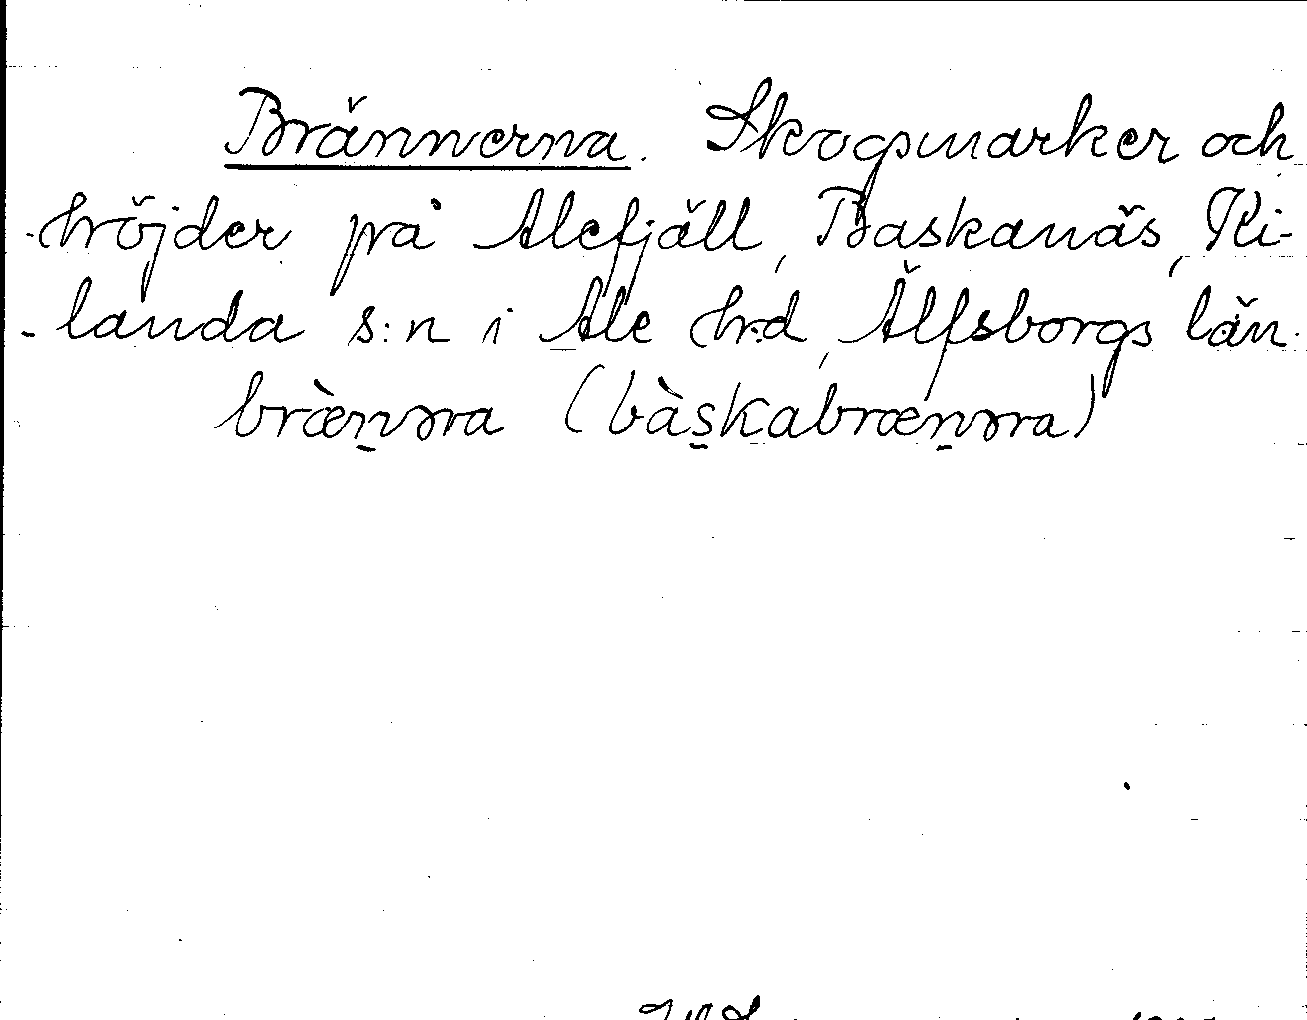 Brännerna. Skogsmarker och
höjder på Alefjäll, Baskanäs, Ki-
landa s:n i Ale h:d, Älfsborgs län.
bræ̀n̠əra (bàs̠kabræn̠əra)